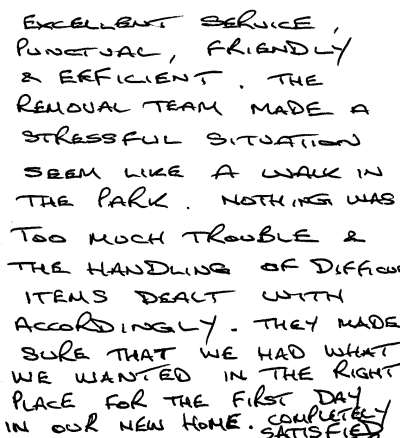 EXCELLENT SERVICE,
PUNCTUAL, FRIENDLY
& EFFICIENT. THE
REMOVAL TEAM MADE A
STRESSFUL SITUATION
SEEM LIKE A WALK IN
THE PARK. NOTHING WAS
TOO MUCH TROUBLE &
THE HANDLING OF DIFFICU
ITEMS DEALT WITH
ACCORDINGLY. THEY MADE
SURE THAT WE HAD WHAT
WE WANTED IN THE RIGHT
PLACE FOR THE FIRST DAY
IN OUR NEW HOME. COMPLETELY
SATISFIED